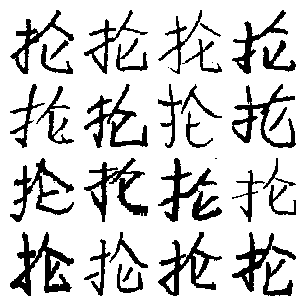 抡抡抡抡
抡抡抡抡
抡抡抡抡
抡抡抡抡